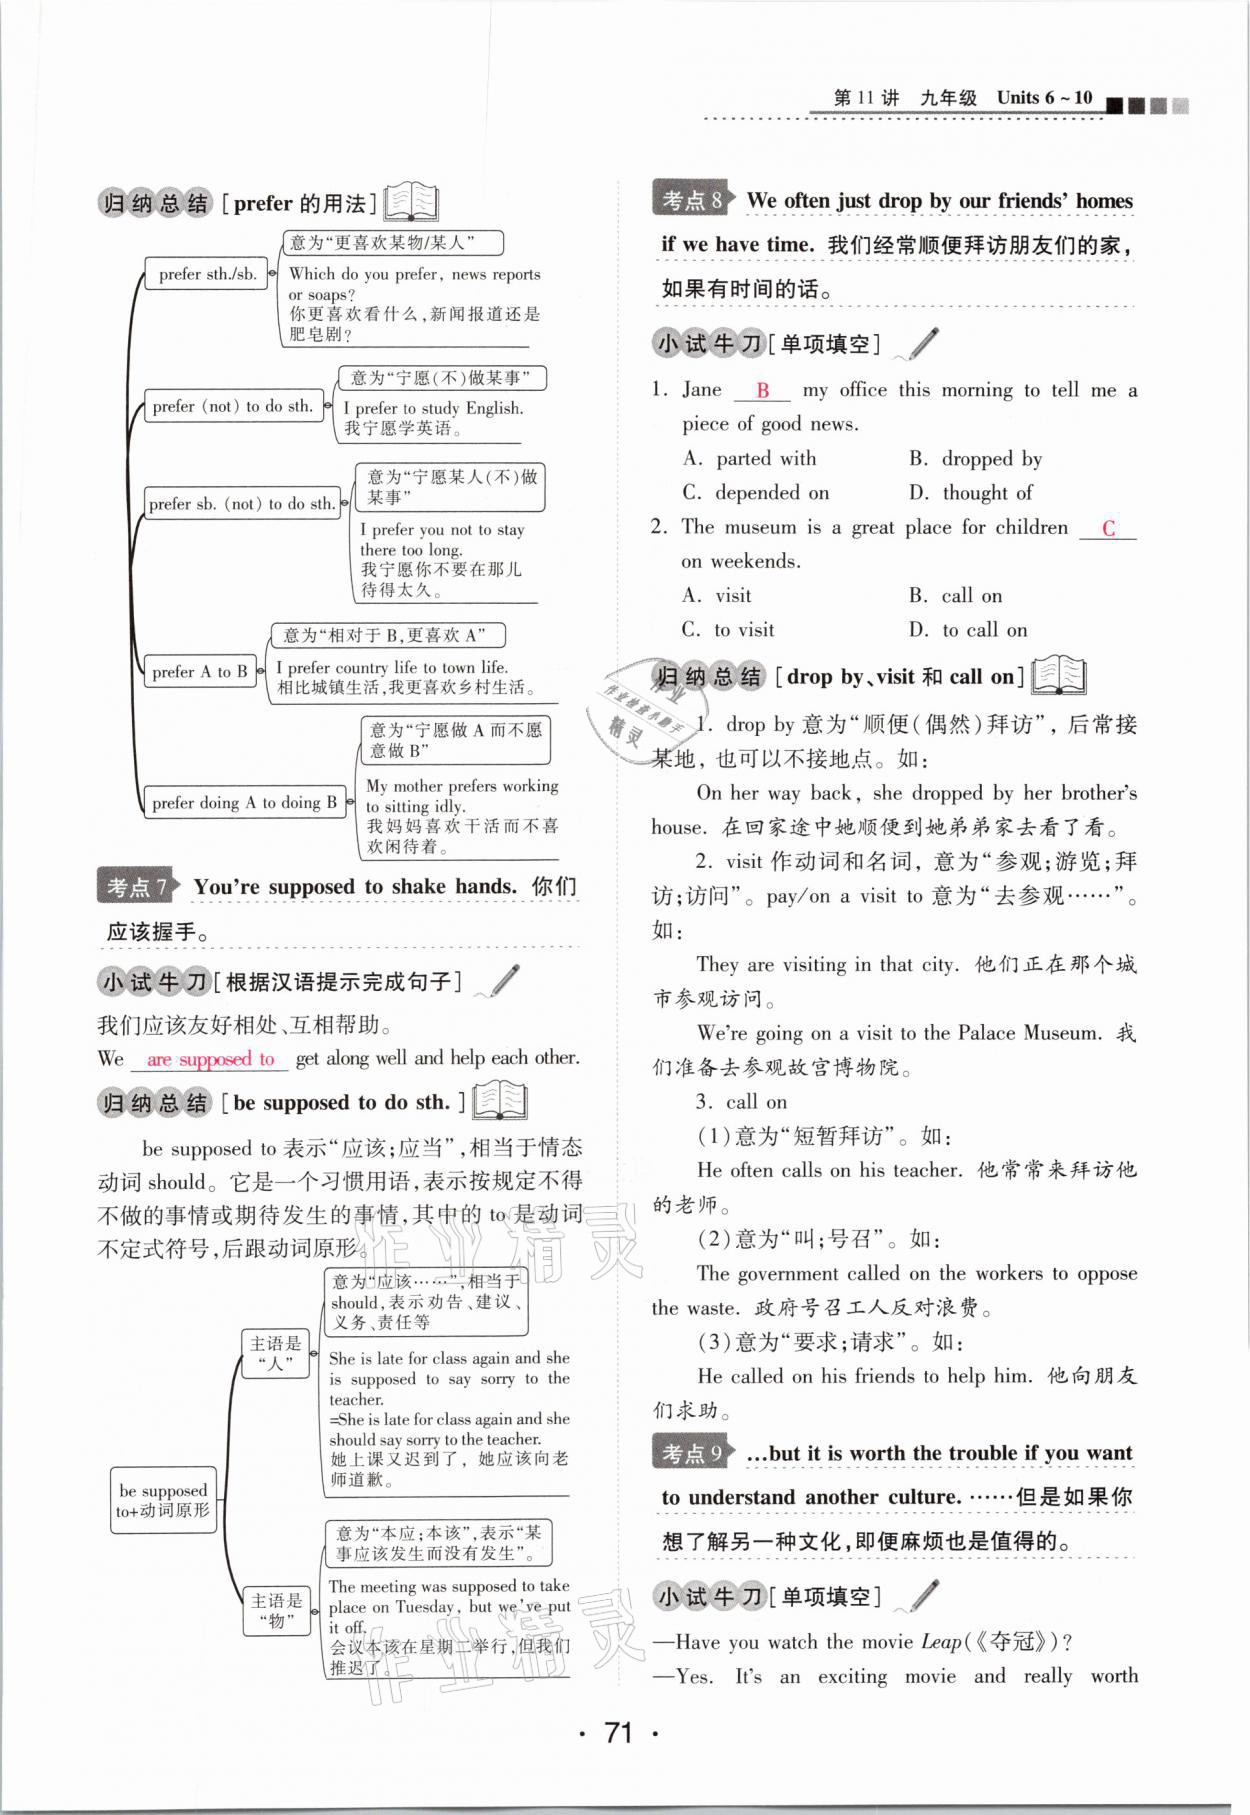 第11讲 九年级 Units 6~10
归纳总结 [prefer 的用法]
prefer sth./sb.
意为“更喜欢某物/某人”
Which do you prefer, news reports
or soaps?
你更喜欢看什么,新闻报道还是
肥皂剧?
prefer (not) to do sth.
意为“宁愿(不)做某事”
I prefer to study English.
我宁愿学英语。
prefer sb. (not) to do sth.
意为“宁愿某人(不)做
某事”
I prefer you not to stay
there too long.
我宁愿你不要在那儿
待得太久。
prefer A to B
意为“相对于 B,更喜欢 A”
I prefer country life to town life.
相比城镇生活,我更喜欢乡村生活。
prefer doing A to doing B
意为“宁愿做 A 而不愿
意做 B”
My mother prefers working
to sitting idly.
我妈妈喜欢干活而不喜
欢闲待着。
考点7 You're supposed to shake hands. 你们
应该握手。
小试牛刀 [根据汉语提示完成句子]
我们应该友好相处、互相帮助。
We are supposed to get along well and help each other.
归纳总结 [be supposed to do sth. ]
be supposed to 表示“应该;应当”,相当于情态
动词 should。它是一个习惯用语,表示按规定不得
不做的事情或期待发生的事情,其中的 to 是动词
不定式符号,后跟动词原形。
be supposed
to+动词原形
主语是
“人”
意为“应该……”,相当于
should,表示劝告、建议、
义务、责任等
She is late for class again and she
is supposed to say sorry to the
teacher.
=She is late for class again and she
should say sorry to the teacher.
她上课又迟到了,她应该向老
师道歉。
主语是
“物”
意为“本应;本该”,表示“某
事应该发生而没有发生”。
The meeting was supposed to take
place on Tuesday, but we've put
it off.
会议本该在星期二举行,但我们
推迟了。
考点8 We often just drop by our friends' homes
if we have time. 我们经常顺便拜访朋友们的家,
如果有时间的话。
小试牛刀 [单项填空]
1. Jane B my office this morning to tell me a
piece of good news.
A. parted with B. dropped by
C. depended on D. thought of
2. The museum is a great place for children C
on weekends.
A. visit B. call on
C. to visit D. to call on
归纳总结 [drop by、visit 和 call on]
1. drop by 意为“顺便(偶然)拜访”,后常接
某地,也可以不接地点。如:
On her way back, she dropped by her brother's
house. 在回家途中她顺便到她弟弟家去看了看。
2. visit 作动词和名词,意为“参观;游览;拜
访;访问”。pay/on a visit to 意为“去参观……”。
如:
They are visiting in that city. 他们正在那个城
市参观访问。
We're going on a visit to the Palace Museum. 我
们准备去参观故宫博物院。
3. call on
(1)意为“短暂拜访”。如:
He often calls on his teacher. 他常常来拜访他
的老师。
(2)意为“叫;号召”。如:
The government called on the workers to oppose
the waste. 政府号召工人反对浪费。
(3)意为“要求;请求”。如:
He called on his friends to help him. 他向朋友
们求助。
考点9 …but it is worth the trouble if you want
to understand another culture. ……但是如果你
想了解另一种文化,即便麻烦也是值得的。
小试牛刀 [单项填空]
—Have you watch the movie Leap(《夺冠》)?
—Yes. It's an exciting movie and really worth
作业
作业检查小助手
精灵
作业精灵
作业精灵
· 71 ·